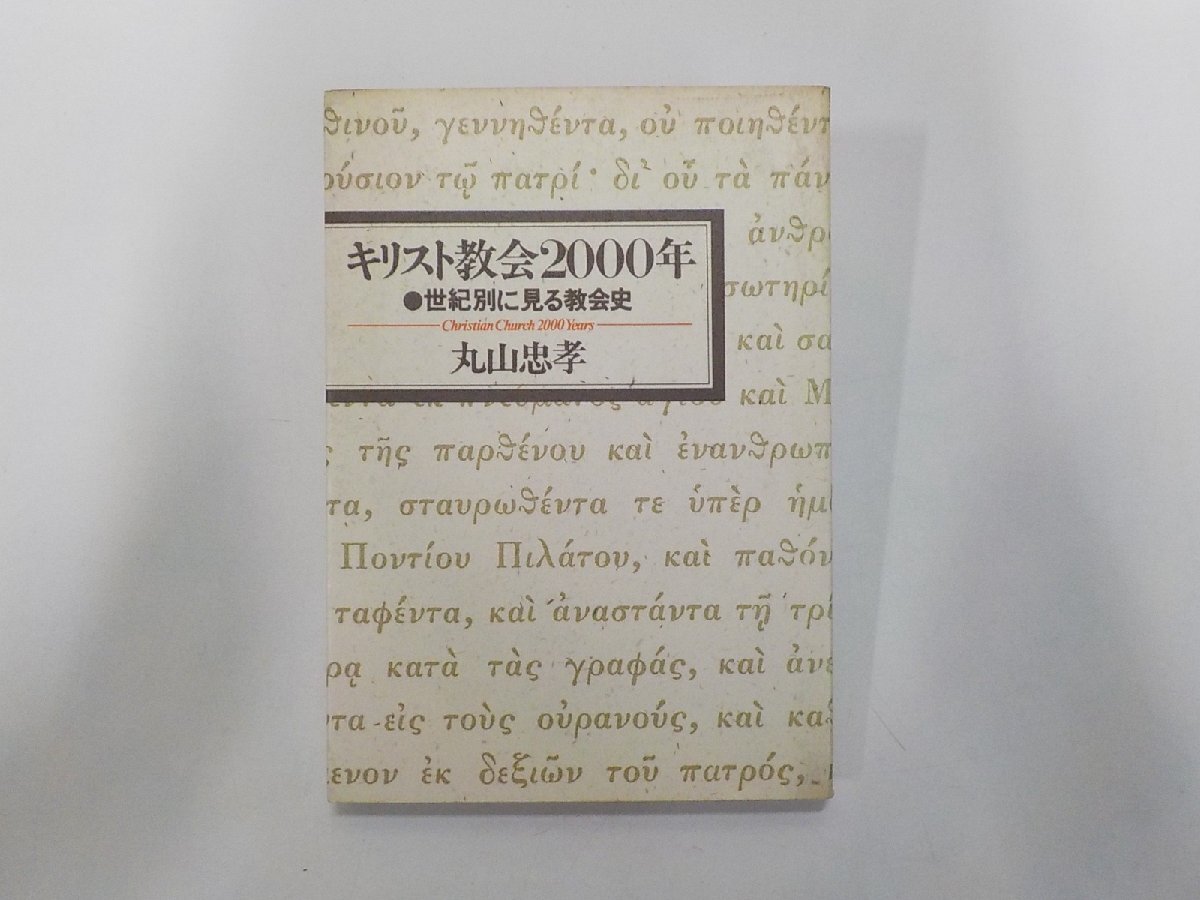 θινοῦ, γεννηθέντα, οὐ ποιηθέντ
ούσιον τῷ πατρί· δι' οὗ τὰ πάν
ἀνθρ
σωτηρί
καὶ σα
καὶ Μ
キリスト教会2000年
●世紀別に見る教会史
Christian Church 2000 Years
丸山忠孝
ς τῆς παρθένου καὶ ἐνανθρωπ
τα, σταυρωθέντα τε ὑπὲρ ἡμ
Ποντίου Πιλάτου, καὶ παθόν
ταφέντα, καὶ ἀναστάντα τῇ τρί
ρᾳ κατὰ τὰς γραφάς, καὶ ἀνε
ντα εἰς τοὺς οὐρανούς, καὶ καθ
ενον ἐκ δεξιῶν τοῦ πατρός,